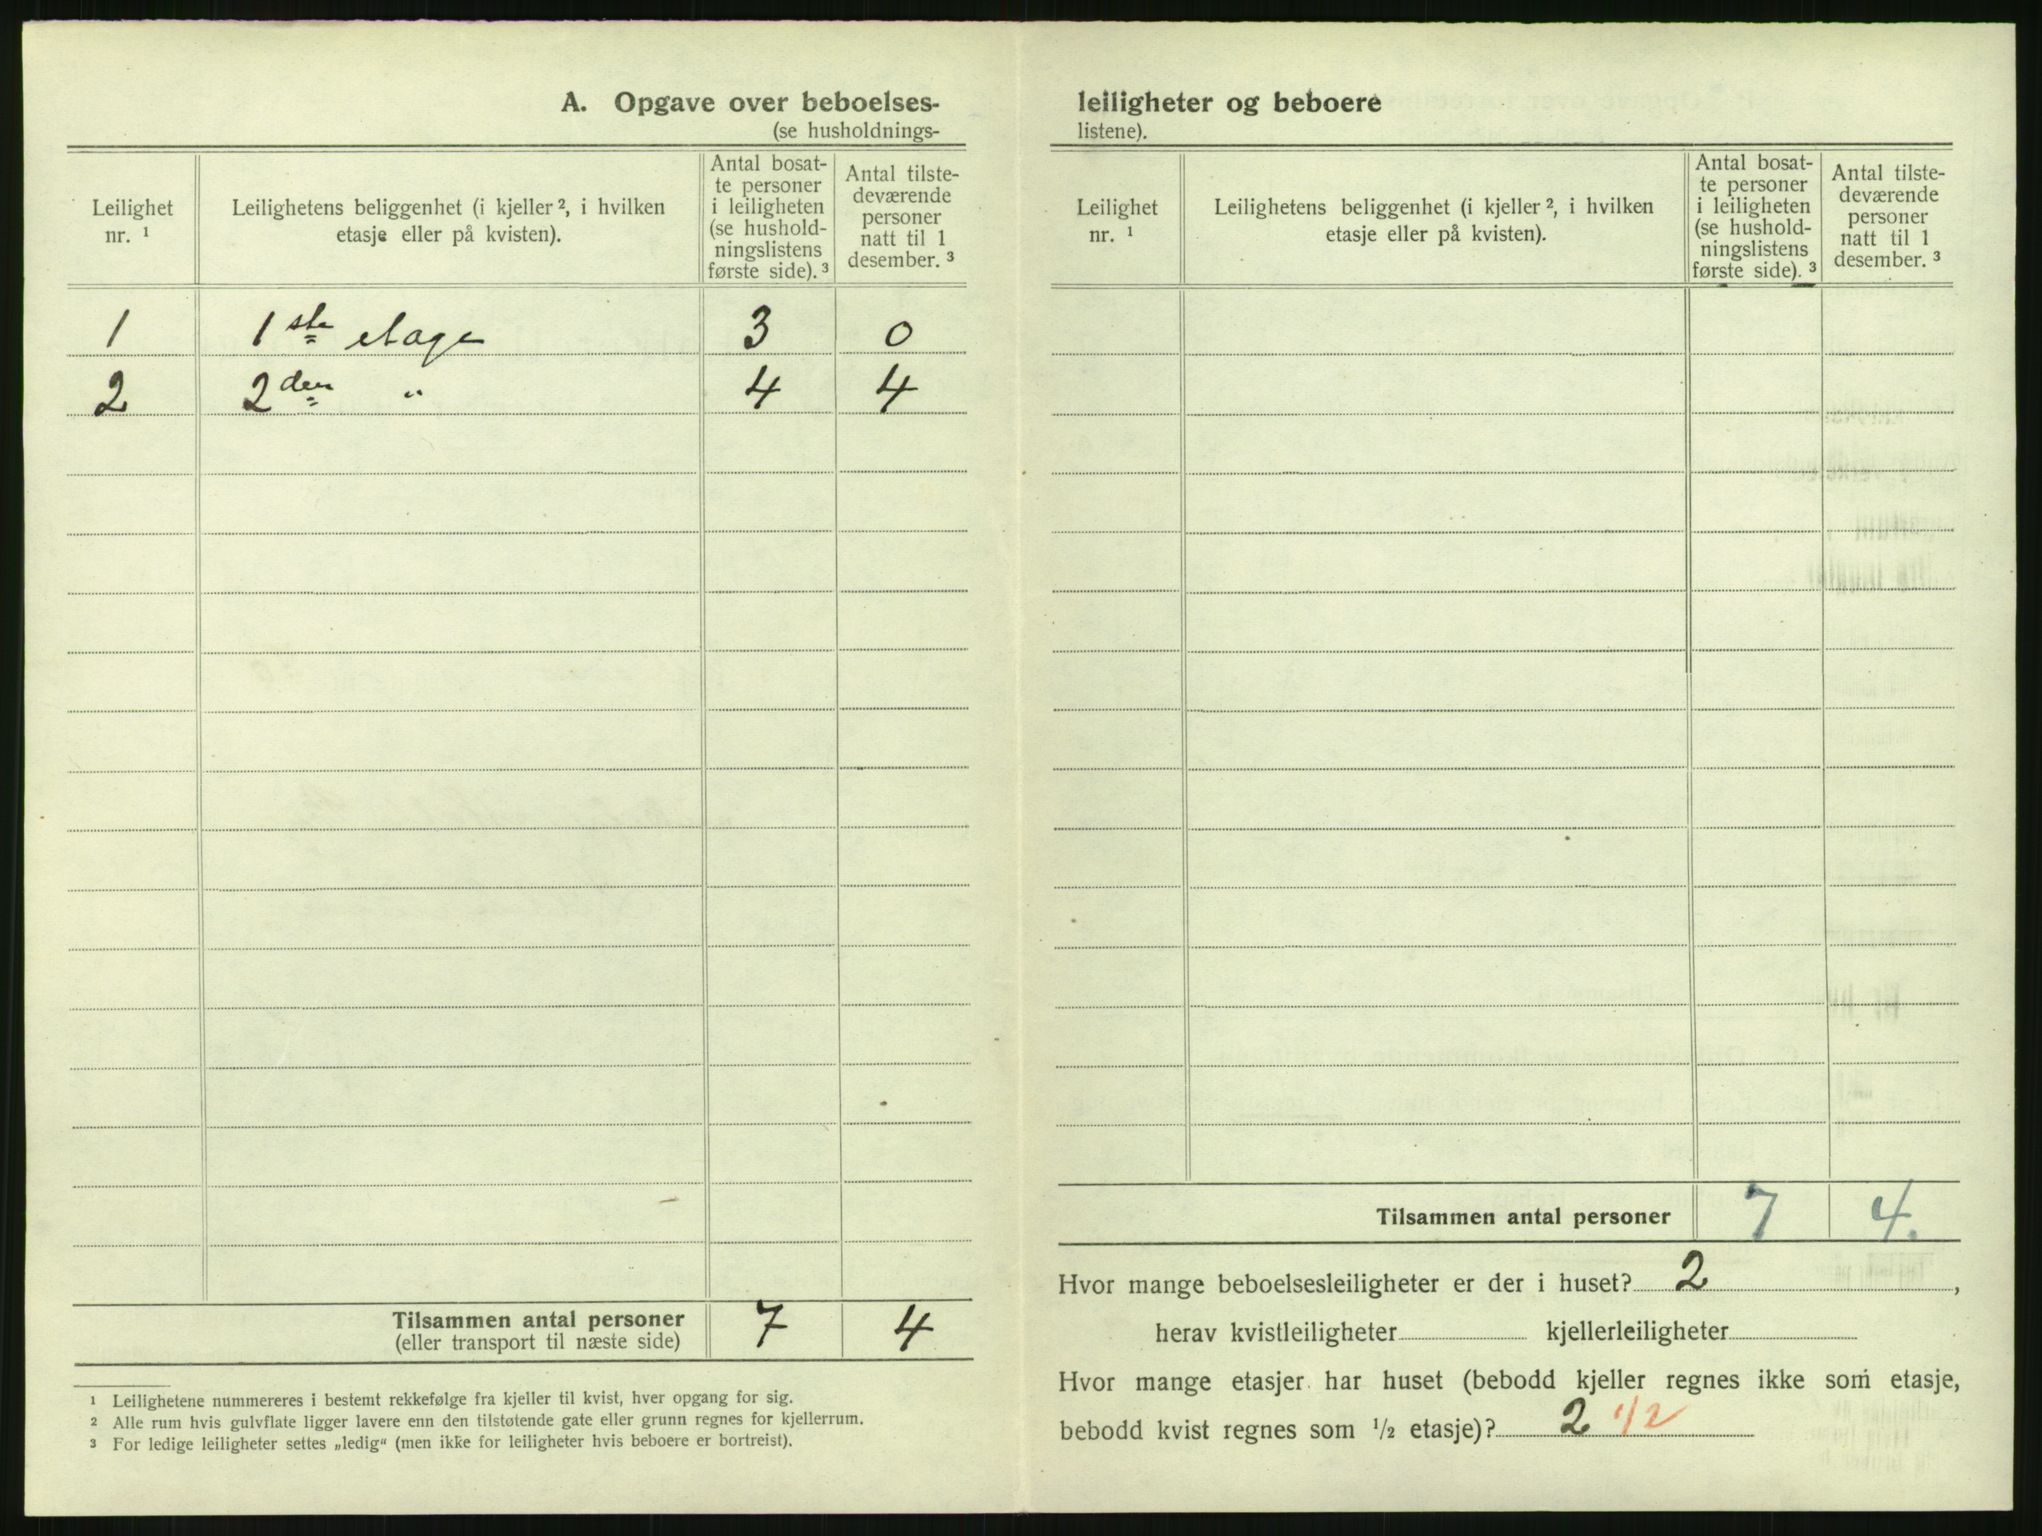 A. Opgave over beboelses-
(se husholdnings-
Leilighet
nr. 1
Leilighetens beliggenhet (i kjeller 2, i hvilken
etasje eller på kvisten).
Antal bosat-
te personer
i leiligheten
(se hushold-
ningslistens
første side). 3
Antal tilste-
deværende
personer
natt til 1
desember. 3
1 1ste etage 3 0
2 2den " 4 4
Tilsammen antal personer 7 4
(eller transport til næste side)
1 Leilighetene nummereres i bestemt rekkefølge fra kjeller til kvist, hver opgang for sig.
2 Alle rum hvis gulvflate ligger lavere enn den tilstøtende gate eller grunn regnes for kjellerrum.
3 For ledige leiligheter settes „ledig“ (men ikke for leiligheter hvis beboere er bortreist).
leiligheter og beboere
listene).
Leilighet
nr. 1
Leilighetens beliggenhet (i kjeller 2, i hvilken
etasje eller på kvisten).
Antal bosat-
te personer
i leiligheten
(se hushold-
ningslistens
første side). 3
Antal tilste-
deværende
personer
natt til 1
desember. 3
Tilsammen antal personer 7 4.
Hvor mange beboelsesleiligheter er der i huset? 2 ,
herav kvistleiligheter kjellerleiligheter
Hvor mange etasjer har huset (bebodd kjeller regnes ikke som etasje,
bebodd kvist regnes som 1/2 etasje)? 2 1/2